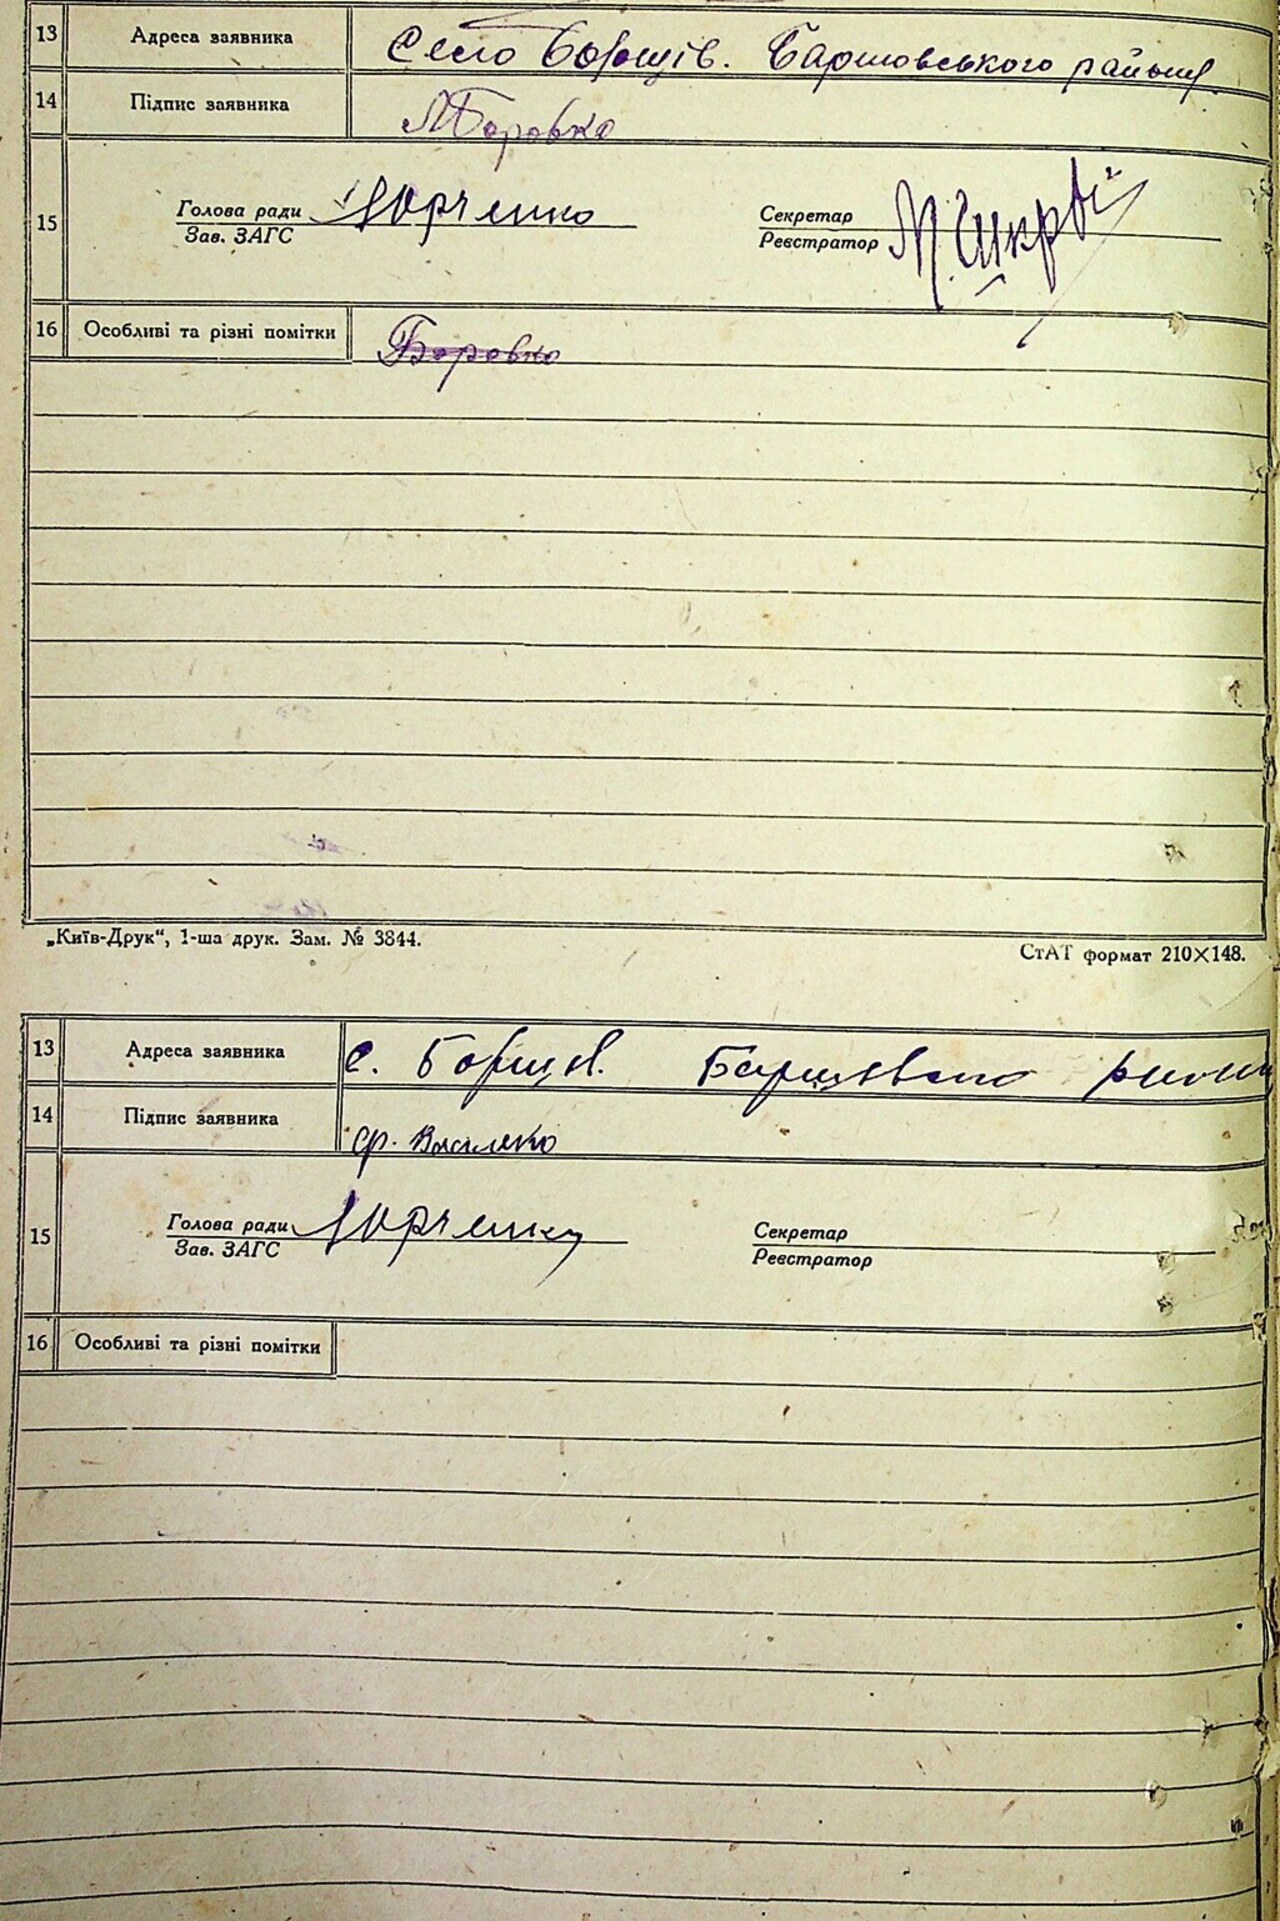 13 Адреса заявника Село Борщів. Баришовського району
14 Підпис заявника М Боровко
15 Голова ради Юрченко Секретар
Зав. ЗАГС Реєстратор
16 Особливі та різні помітки Боровко
„Київ-Друк“, 1-ша друк. Зам. № 3844.
СтАТ формат 210×148.
13 Адреса заявника с. Борщів.
14 Підпис заявника
15 Голова ради Юрченко Секретар
Зав. ЗАГС Реєстратор
16 Особливі та різні помітки